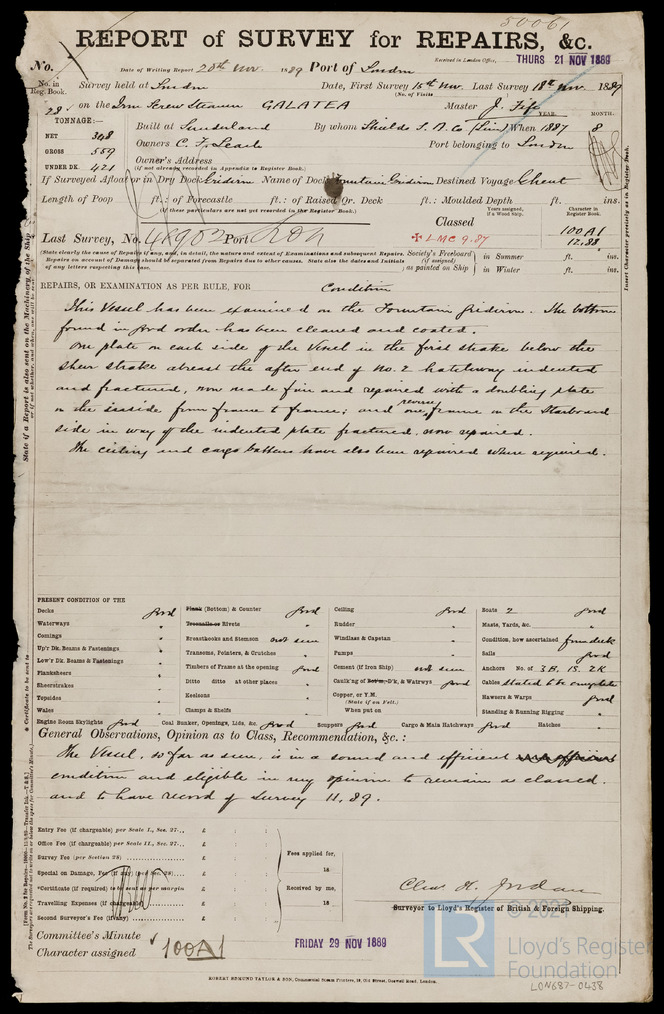 50061
REPORT of SURVEY for REPAIRS, &c.
No.
Date of Writing Report 20th Nov. 1889 Port of London
Received in London Office, THURS 21 NOV 1889
No. in Reg. Book.
Survey held at London Date, First Survey 15th Nov. Last Survey 18th Nov. 1889
(No. of Visits )
28 on the Iron Screw Steamer GALATEA Master J. Fife
TONNAGE:—
YEAR. MONTH.
NET 348
Built at Sunderland By whom Shields S. B. Co (Lim) When 1887 8
GROSS 559
Owners C. F. Leach Port belonging to London
UNDER DK. 421
Owner's Address
(if not already recorded in Appendix to Register Book.)
If Surveyed Afloat or in Dry Dock Gridiron Name of Dock Fountain Gridiron Destined Voyage Ghent
Length of Poop ft.: of Forecastle ft.: of Raised Qr. Deck ft.: Moulded Depth ft. ins.
(if these particulars are not yet recorded in the Register Book.)
Years assigned, if a Wood Ship.
Character in Register Book.
Classed
100A1
Last Survey, No. 48902 Port Lon
+LMC 9.87
12.88
(State clearly the cause of Repairs if any, and, in detail, the nature and extent of Examinations and subsequent Repairs.
Repairs on account of Damage should be separated from Repairs due to other causes. State also the dates and Initials
of any letters respecting this case.
Society's Freeboard (if assigned) as painted on Ship
in Summer ft. ins.
in Winter ft. ins.
REPAIRS, OR EXAMINATION AS PER RULE, FOR Condition
This Vessel has been examined on the Fountain Gridiron. The bottom
found in good order has been cleaned and coated.
One plate on each side of the Vessel in the first strake below the
sheer strake abreast the after end of No. 2 hatchway indented
and fractured, now made fair and repaired with a doubling plate
on the inside from frame to frame; and one reverse frame on the Starboard
side in way of the indented plate fractured, now repaired.
The ceiling and cargo battens have also been repaired where required.
State if a Report is also sent on the Machinery of the Ship
or if not whether, and when, one will be sent.
Insert Character precisely as in Register Book.
* Certificate to be sent to
PRESENT CONDITION OF THE
Decks good
Waterways "
Comings "
Up'r Dk. Beams & Fastenings "
Low'r Dk. Beams & Fastenings "
Planksheers "
Sheerstrakes "
Topsides "
Wales "
Engine Room Skylights good
Plank (Bottom) & Counter good
Treenails or Rivets "
Breasthooks and Stemson not seen
Transoms, Pointers, & Crutches "
Timbers of Frame at the opening good
Ditto ditto at other places "
Keelsons "
Clamps & Shelfs "
Coal Bunker, Openings, Lids, &c. good
Ceiling good
Rudder "
Windlass & Capstan "
Pumps "
Cement (if Iron Ship) not seen
Caulk'ng of Bot'm, D'k, & Watrwys good
Copper, or Y.M.
(State if on Felt.)
When put on
Scuppers good Cargo & Main Hatchways good
Boats 2 good
Masts, Yards, &c. "
Condition, how ascertained from deck
Sails good
Anchors No. of 3B. 1S. 2K
Cables stated to be complete
Hawsers & Warps good
Standing & Running Rigging "
Hatches "
General Observations, Opinion as to Class, Recommendation, &c.:
The Vessel, so far as seen, is in a sound and efficient
condition and eligible in my opinion to remain as classed.
and to have record of Survey 11.89.
Entry Fee (if chargeable) per Scale I., Sec. 27... £ : :
Office Fee (if chargeable) per Scale II., Sec. 27... £ : :
Survey Fee (per Section 28) £ : :
Special on Damage, Fee (if any) (per Sec. 28) £ : :
*Certificate (if required) to be sent as per margin £ : :
Travelling Expenses (if chargeable) £ : :
Second Surveyor's Fee (if any) £ : :
Fees applied for,
18
Received by me,
18
Chas. H. Jordan
Surveyor to Lloyd's Register of British & Foreign Shipping.
Committee's Minute
FRIDAY 29 NOV 1889
Character assigned 100A1
ROBERT EDMUND TAYLOR & SON, Commercial Steam Printers, 19, Old Street, Goswell Road, London.
© 2021
LR
Lloyd's Register
Foundation
LON687-0438